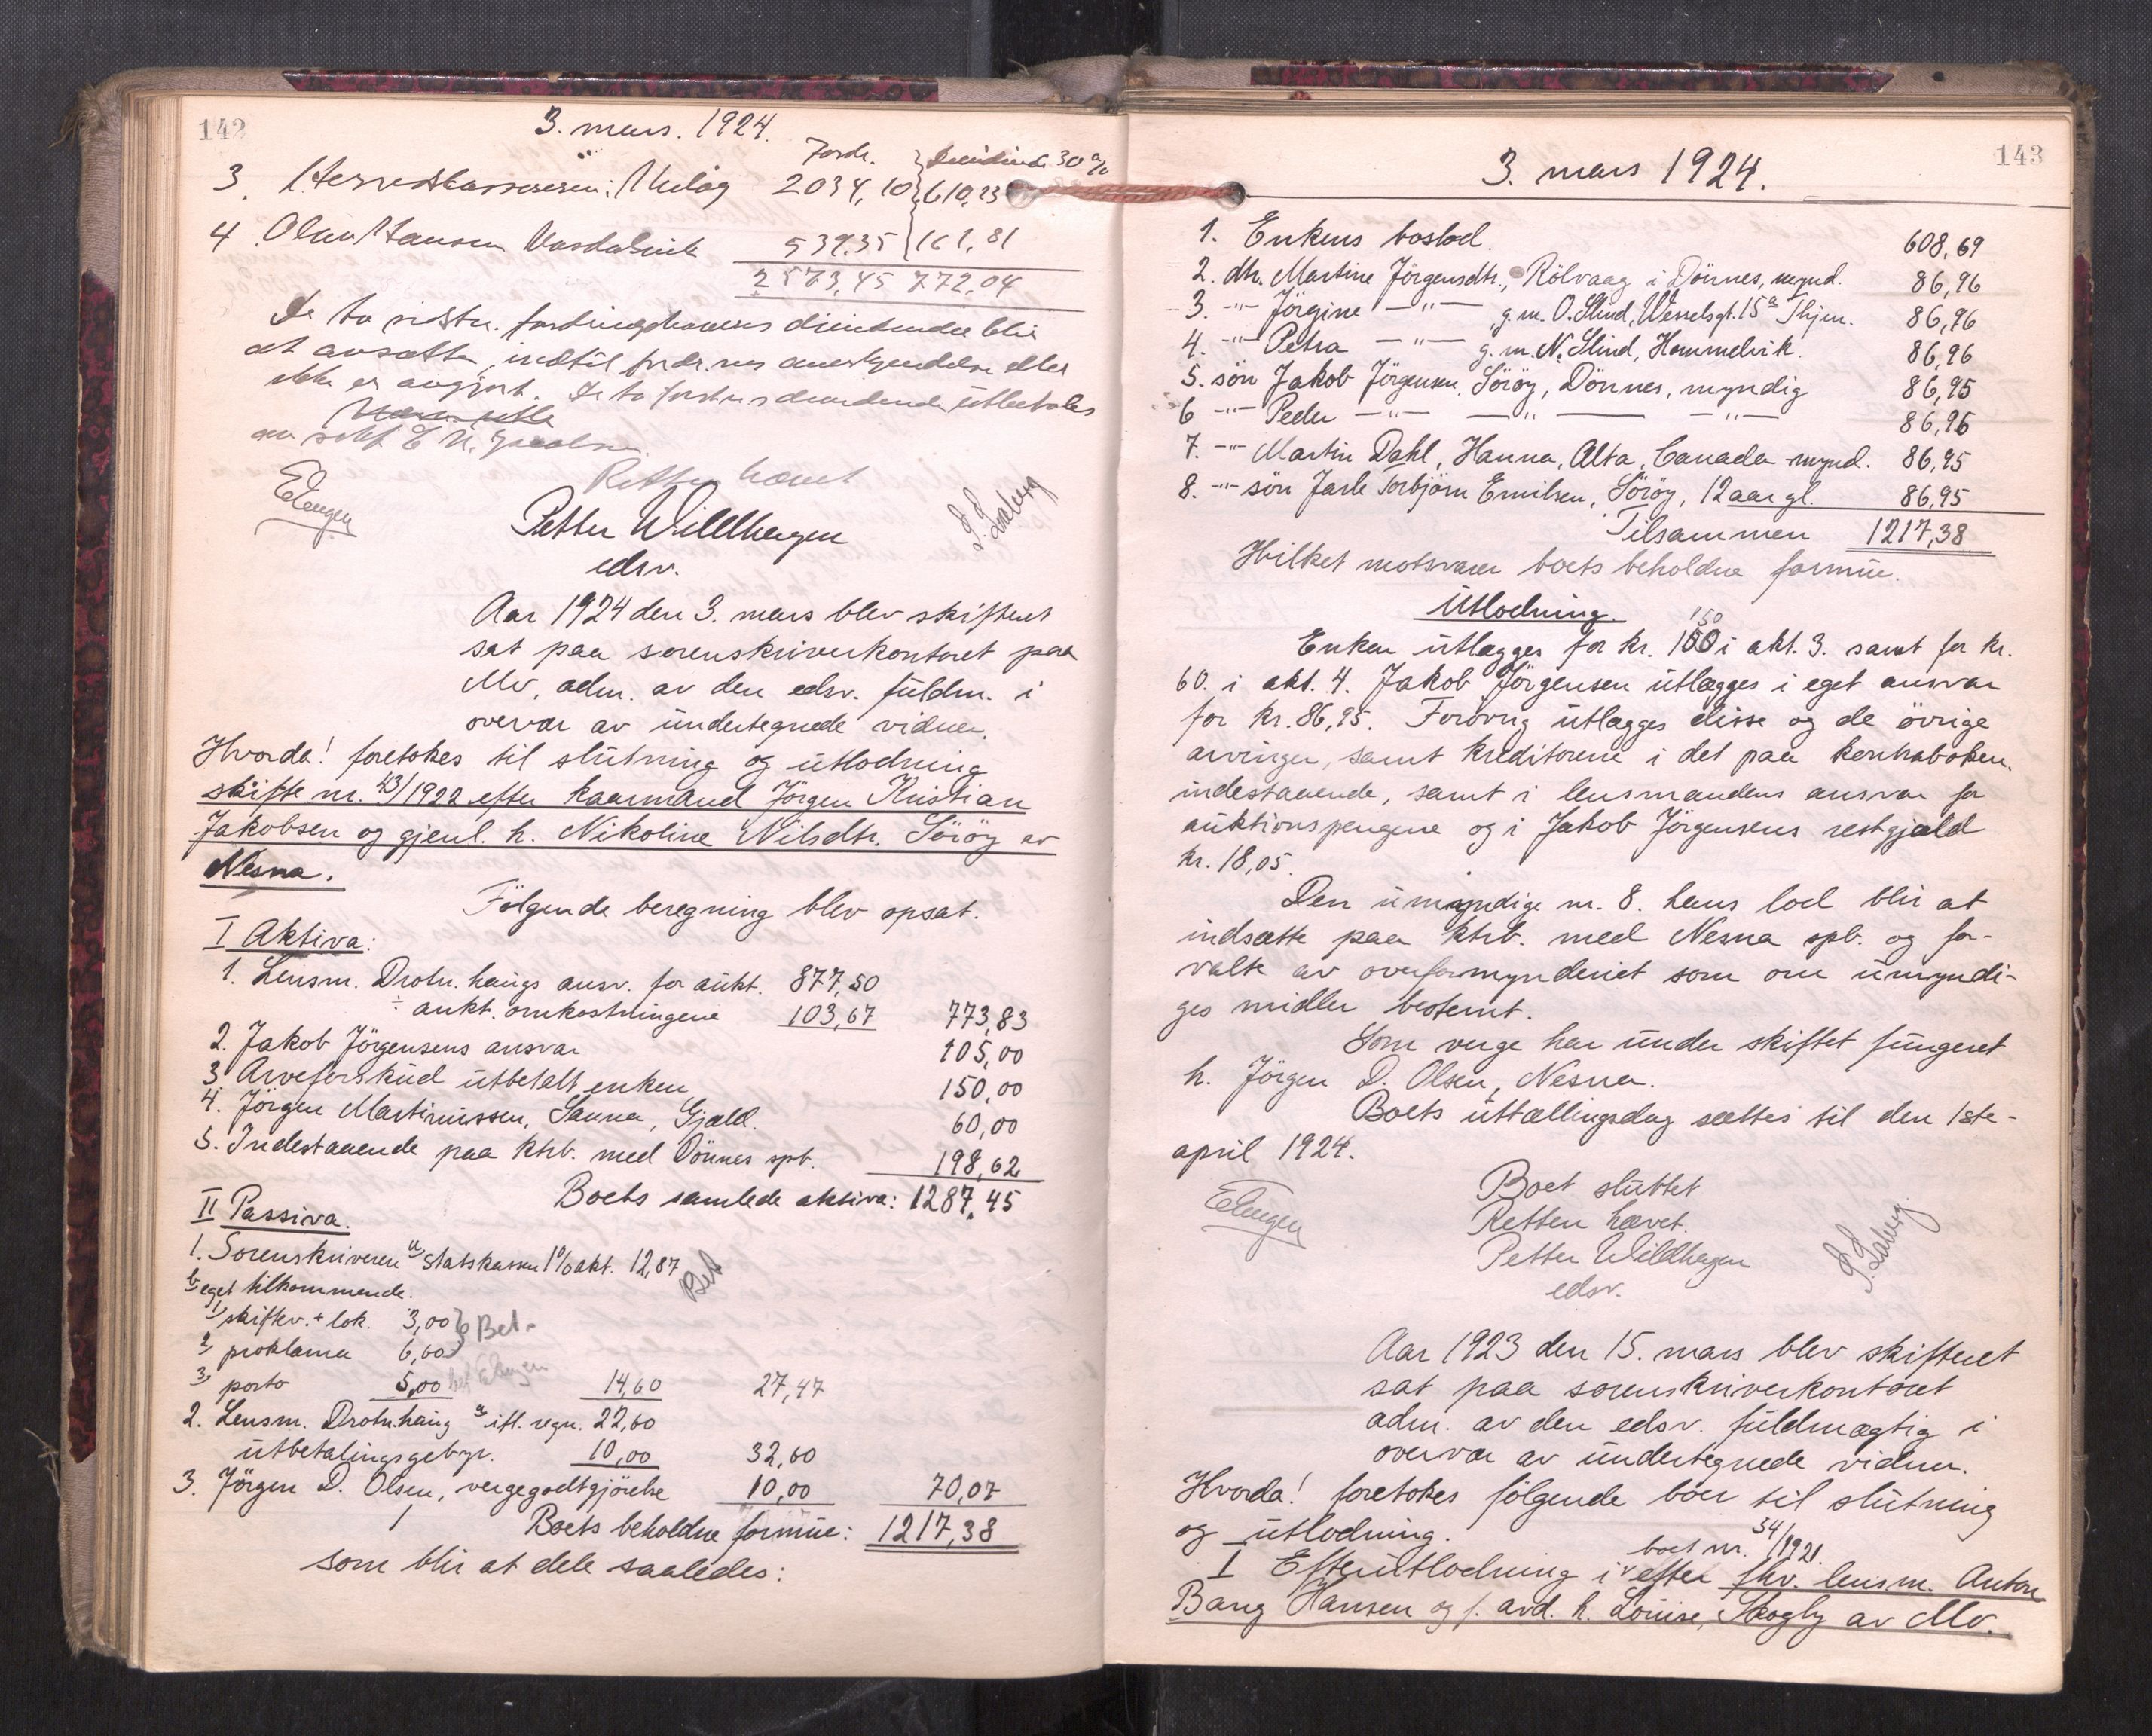 142
3. mars. 1924.
Fordr. Dividende 30 %
3. Herredskassereren: 2034,10 610,23
4. Olav Hansen 539.35 161,81
2573,45 772,04
De to sidstn. fordringshaveres dividende blir
at avsætte, indtil fordr.nes anerkjendelse eller
ikke er avgjort. De to første dividende utbetales
av sakf. E.
Retten hævet
EElingen
Petter Willdhagen
edsv.
Aar 1924 den 3. mars blev skifteret
sat paa sorenskriverkontoret paa
Mo, adm. av den edsv. fuldm. i
overvær av undertegnede vidner.
Hvorda! foretokes til slutning og utlodning
skifte nr. 43/1922 efter kaarmand Jörgen Kristian
Jakobsen og gjenl. h. Nikoline Nilsdtr. Söröy av
Nesna.
Fölgende beregning blev opsat.
I Aktiva:
1. Lensm. Drotn.haugs ansv. for aukt. 877,50
÷ aukt. omkostningene 103,67 773,83
2. Jakob Jörgensens ansvar 105,00
3. Arveforskud utbetalt enken 150,00
4. Jörgen Martinussen, Sauna, Gjæld. 60,00
5. Indestaaende paa ktrb. med Dönnes spb. 198,62
Boets samlede aktiva: 1287,45
II Passiva.
1. Sorenskriveren a) statskassen 1% akt. 12,87 Bet
b) eget tilkommende.
1) skiftev. + lok. 3,00 Bet.
2) proklama 6,60
3) porto 5,00 14,60 27,47
2. Lensm. Drotn.haug a) ifl. regn. 22,60
utbetalingsgebyr. 10,00 32,60
3. Jörgen D. Olsen, vergegodtgjörelse 10,00 70,07
Boets beholdne formue: 1217,38
som blir at dele saaledes:
143
3. mars 1924.
1. Enkens boslod. 608,69
2. dtr. Martine Jörgensdtr., Rölvaag i Dönnes, mynd. 86,96
3. -"- Jörgine -"- g.m. O. Slind, Wesselsgt. 15a Thjm. 86,96
4. -"- Petra -"- g.m. N. Slind, Hommelvik. 86,96
5. sön Jakob Jörgensen, Söröy, Dönnes, myndig 86,95
6 -"- Peder -"- -"- -"- 86,96
7. -"- Martin Dahl, Hanna, Alta, Canada mynd. 86,95
8. -"- sön Jarle Torbjörn Emilsen, Söröy, 12 aar gl. 86,95
Tilsammen 1217,38
Hvilket motsvarer boets beholdne formue.
Utlodning.
150
Enken utlægges for kr. 150 i akt. 3. samt for kr.
60. i akt. 4. Jakob Jörgensen utlægges i eget ansvar
for kr. 86,95. Forövrig utlægges disse og de övrige
arvinger, samt kreditorene i det paa kontraboken.
indestaaende, samt i lensmandens ansvar for
auktionspengene og i Jakob Jörgensens restgjæld
kr. 18,05.
Den umyndige nr. 8. hans lod blir at
indsætte paa ktrb. med Nesna spb. og for-
valte av overformynderiet som om umyndi-
ges midler bestemt.
Som verge har under skiftet fungeret
h. Jörgen D. Olsen, Nesna.
Boets uttællingsdag sættes til den 1ste-
april 1924.
Boet sluttet
Retten hævet.
EElingen
Petter Willdhagen
edsv.
Aar 1923 den 15. mars blev skifteret
sat paa sorenskriverkontoret
adm. av den edsv. fuldmægtig i
overvær av undertegnede vidner.
Hvorda! foretokes fölgende boer til slutning
og utlodning.
boet nr. 34/1921.
I Efterutlodning i efter fhv. lensm. Anton
Bang Hansen og f. avd. h. Louise, Skogly av Mo.